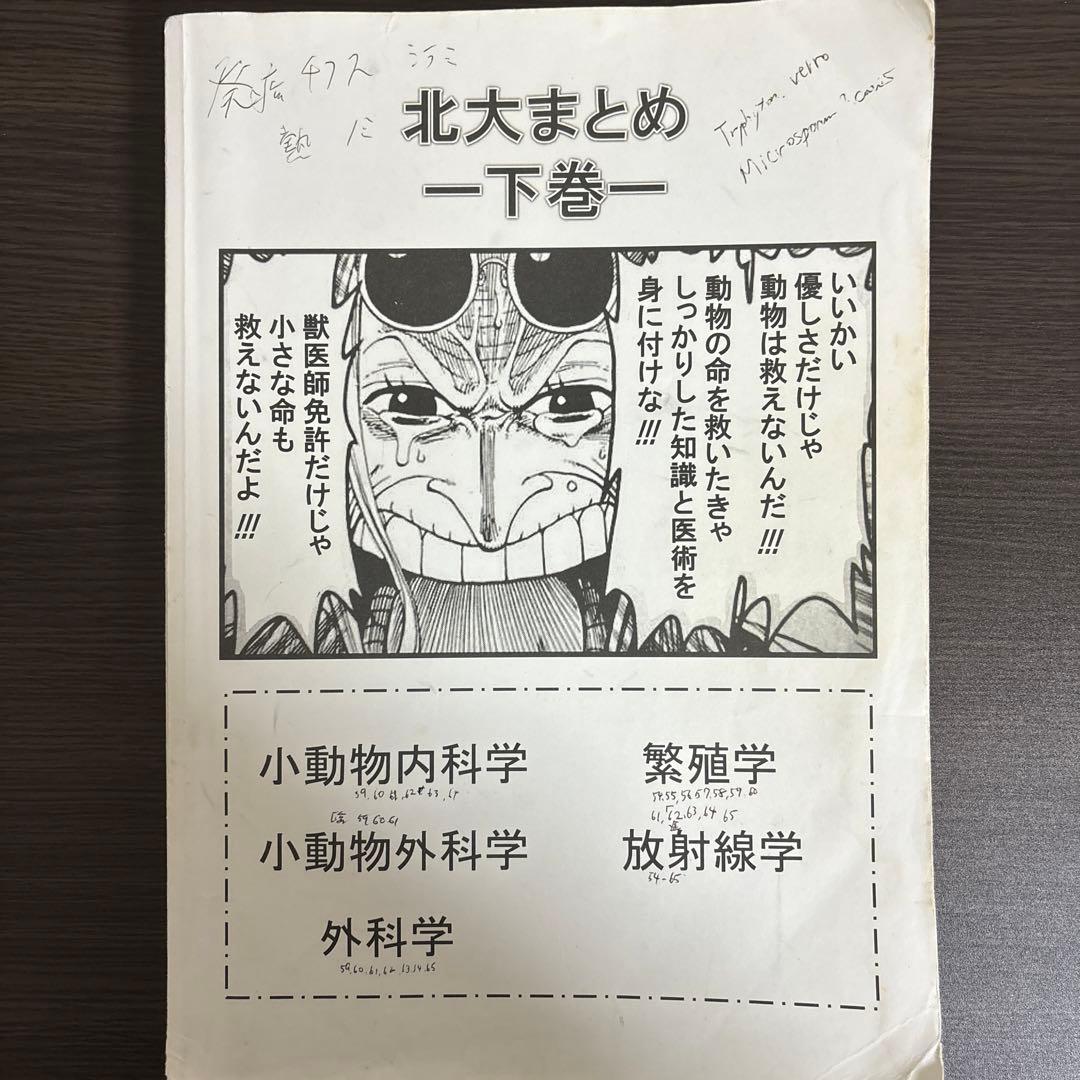 発疹チフス シラミ
熱 ノミ
verro
Microsporum ? canis
北大まとめ
ー下巻ー
いいかい
優しさだけじゃ
動物は救えないんだ!!!
動物の命を救いたきゃ
しっかりした知識と医術を
身に付けな!!!
獣医師免許だけじゃ
小さな命も
救えないんだよ!!!
小動物内科学
59,60
小動物外科学
59,60,61
外科学
59,60,61,62,63,64,65
繁殖学
54,55,56,57,58,59,60
61,62,63,64 65
放射線学
54-65